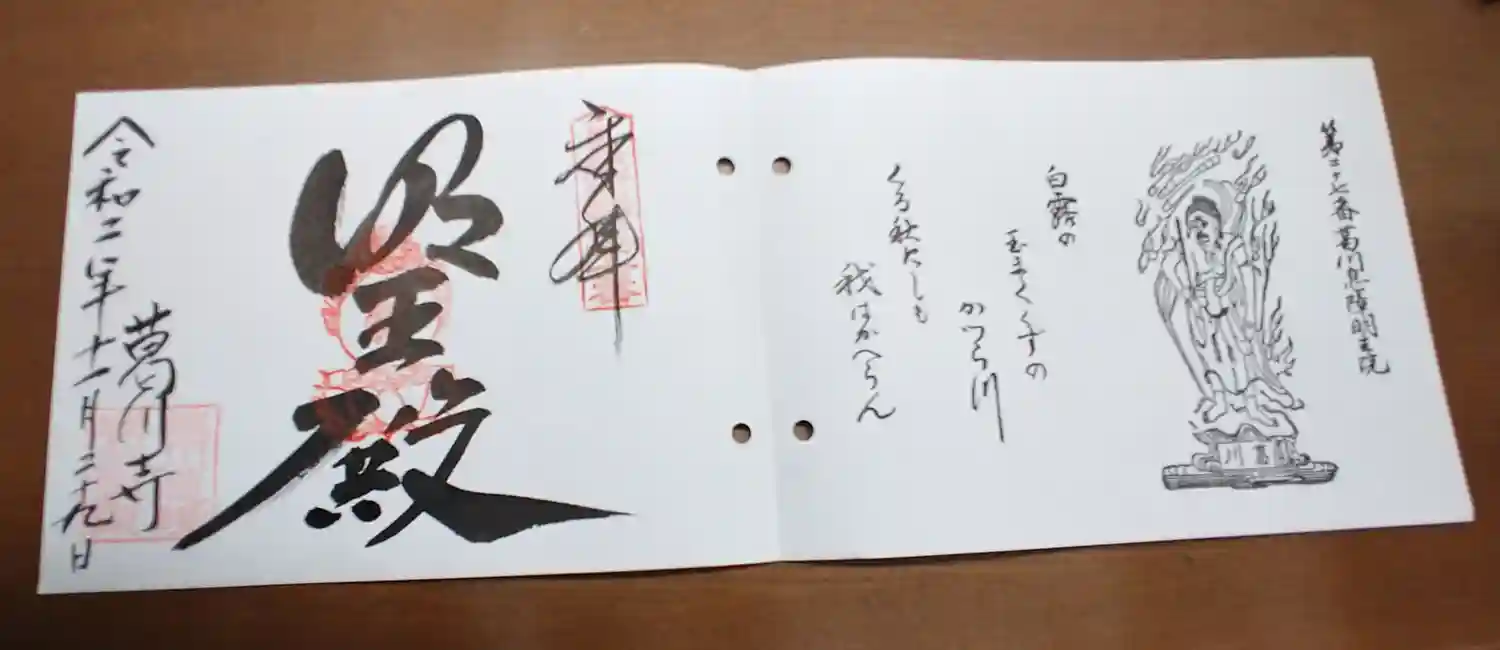 第二十七番葛川息障明王院
白露の
玉まくくずの
かつら川
くる秋にしも
我はかへらん
川葛
奉拝
明王殿
葛川寺
令和二年十一月二十九日